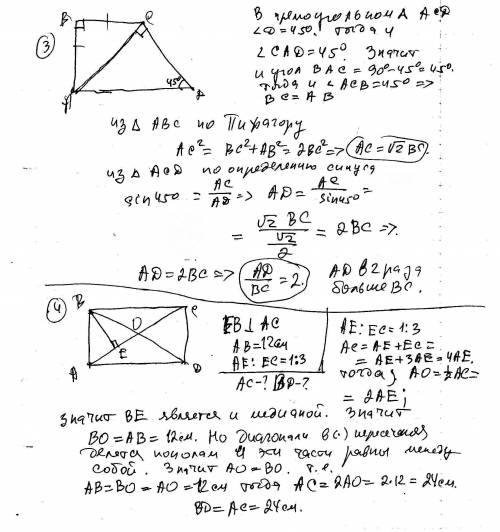 3
B
C
A
D
45°
В прямоугольном Δ ACD
∠D=45°. тогда и
∠CAD=45°. Значит
и угол BAC = 90°-45°=45°.
тогда и ∠ACB=45° =>
BC = AB
из Δ ABC по Пифагору
AC² = BC²+AB² = 2BC² => AC=√2 BC.
из Δ ACD по определению синуса
sin45° = AC/AD => AD = AC/sin45° =
= √2 BC / (√2/2) = 2BC =>.
AD=2BC => AD/BC = 2. AD в 2 раза
больше BC.
4
B
C
O
E
A
D
EB⊥AC
AB=12см
AE:EC=1:3
AC-? BD-?
AE:EC=1:3
AC=AE+EC=
=AE+3AE=4AE.
тогда AO=½AC=
=2AE;
Значит BE является и медианой. Значит
BO=AB=12см. Но диагонали в (·) пересечения
делятся пополам и эти части равны между
собой. Значит AO=BO. т.е.
AB=BO=AO=12см тогда AC=2AO=2·12=24см.
BD=AC=24см.